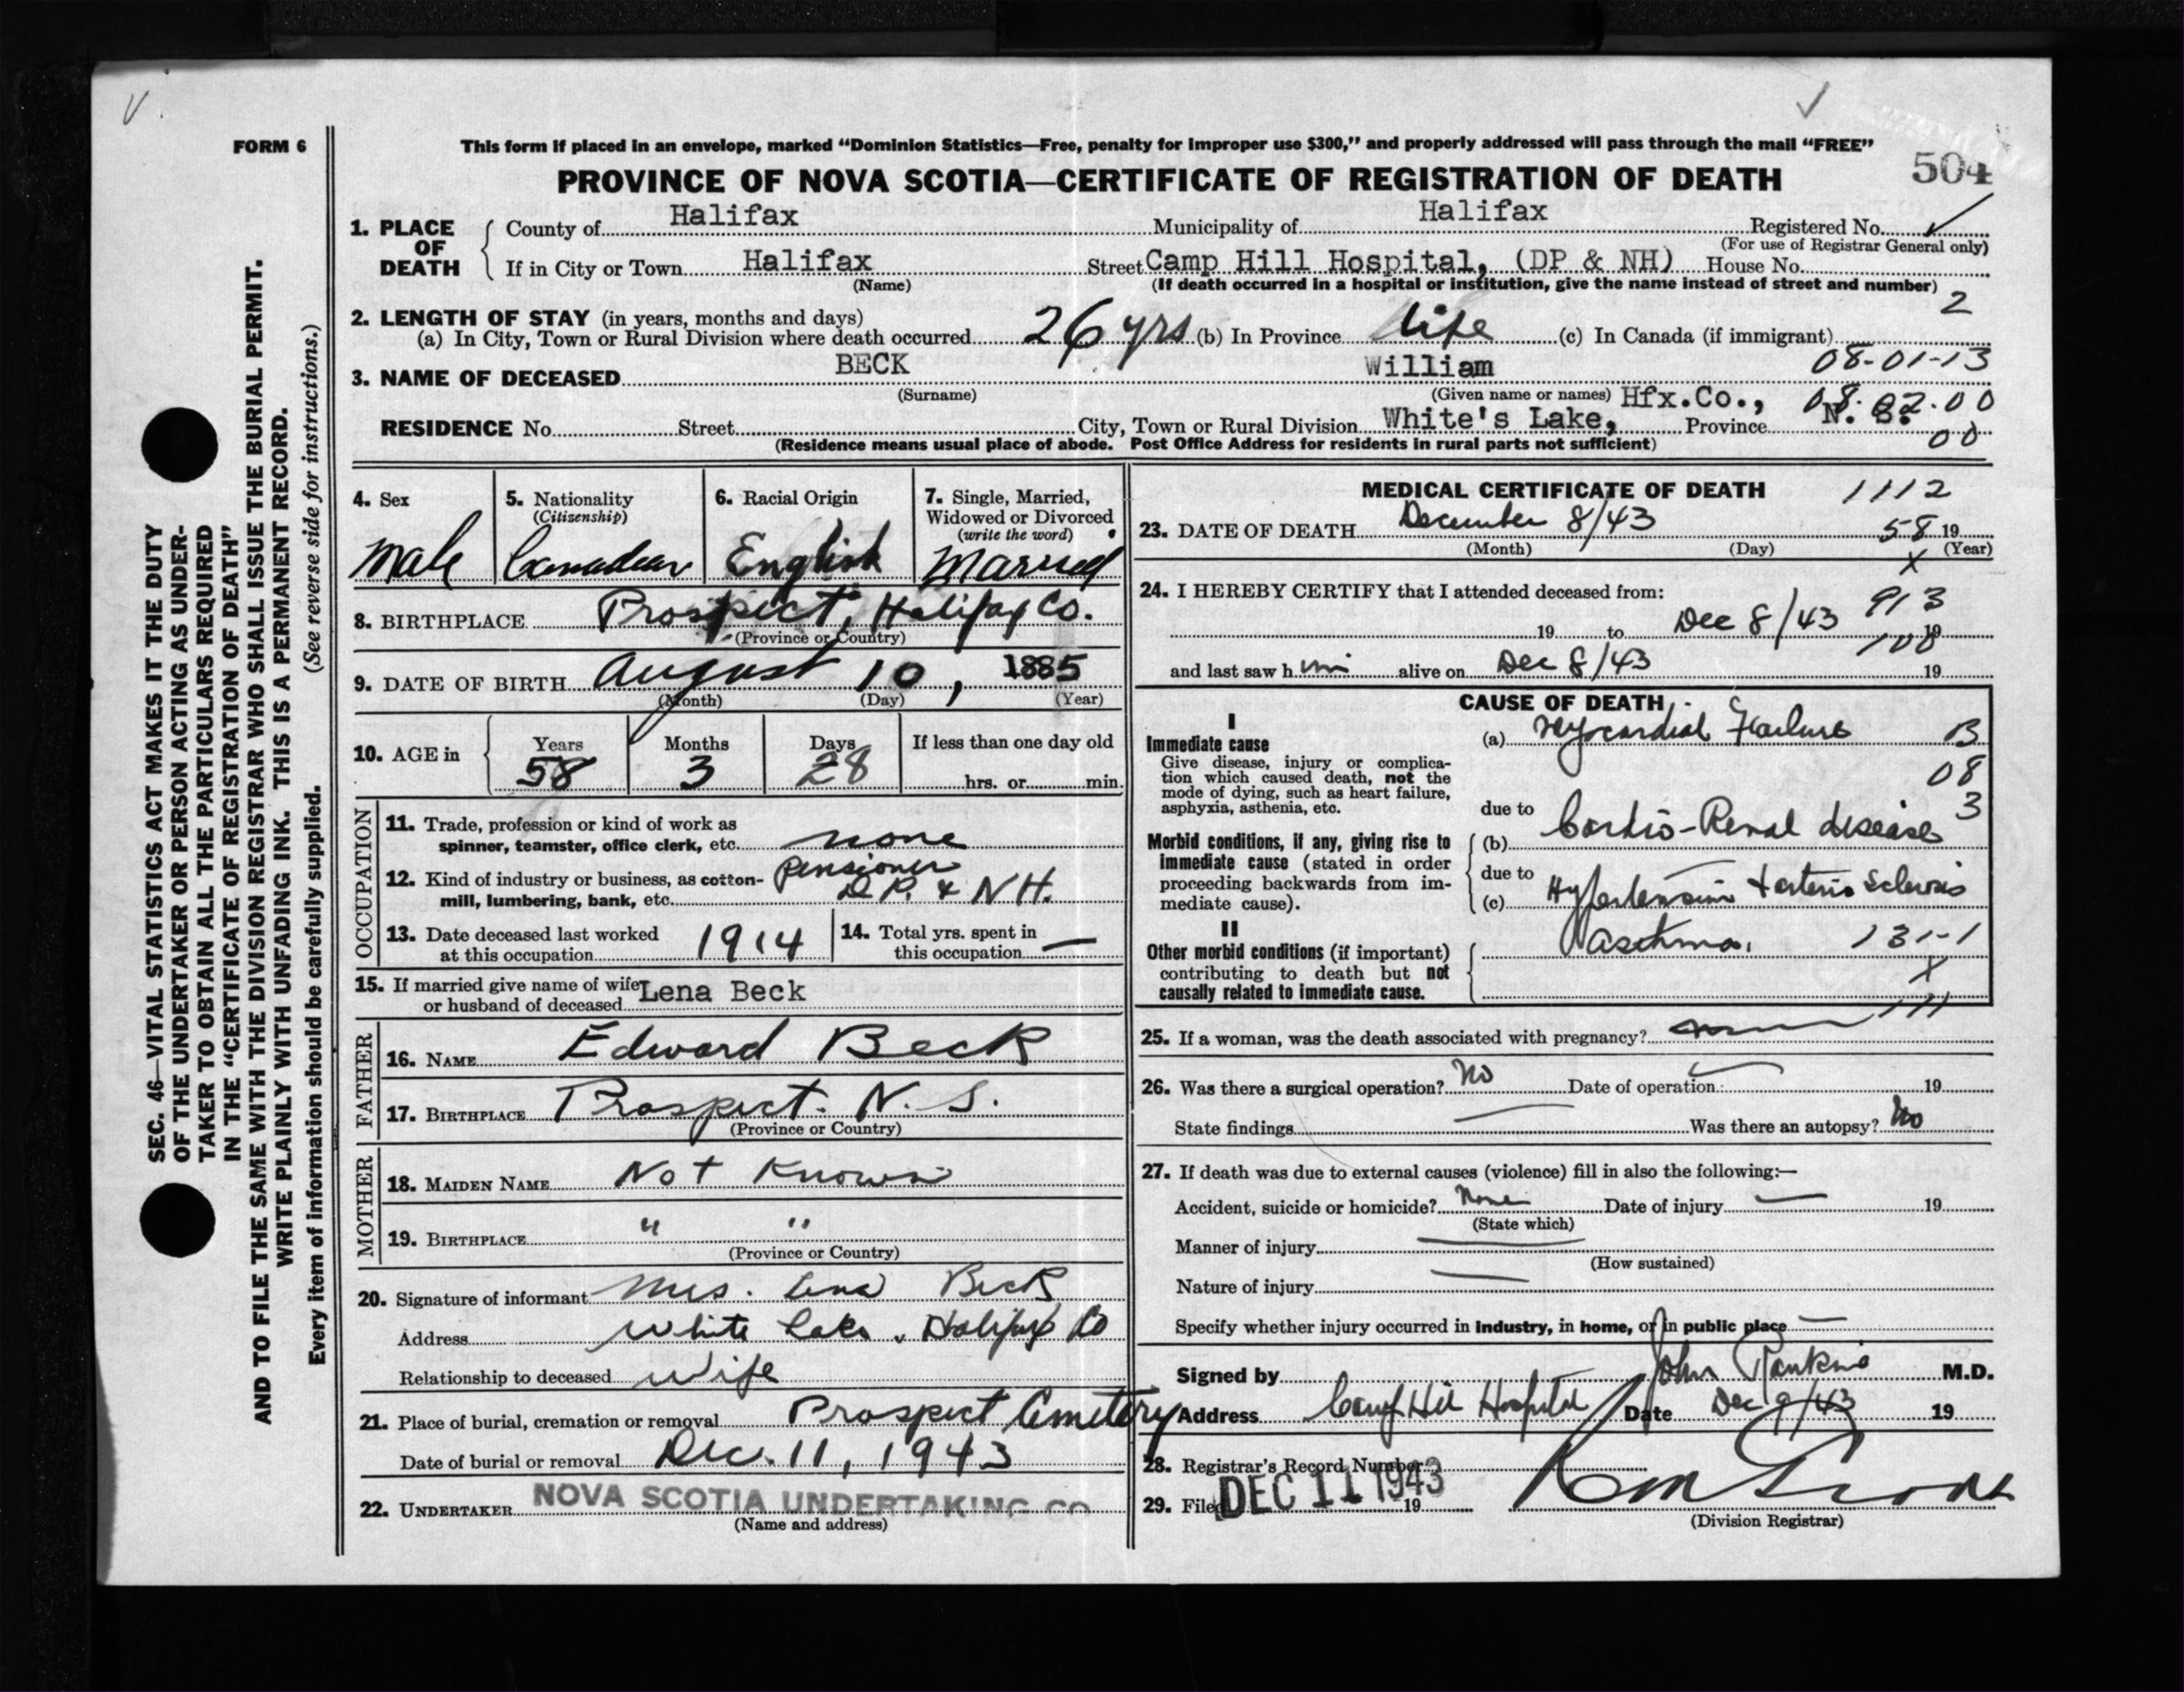 FORM 6
This form if placed in an envelope, marked “Dominion Statistics—Free, penalty for improper use $300,” and properly addressed will pass through the mail “FREE”
PROVINCE OF NOVA SCOTIA—CERTIFICATE OF REGISTRATION OF DEATH 504
1. PLACE OF DEATH County of Halifax Municipality of Halifax Registered No.
(For use of Registrar General only)
If in City or Town Halifax Street Camp Hill Hospital, (DP & NH) House No.
(Name) (If death occurred in a hospital or institution, give the name instead of street and number)
2
2. LENGTH OF STAY (in years, months and days)
(a) In City, Town or Rural Division where death occurred 26 yrs (b) In Province life (c) In Canada (if immigrant)
08-01-13
3. NAME OF DECEASED BECK William
(Surname) (Given name or names) Hfx.Co., 08.02.00
RESIDENCE No. Street City, Town or Rural Division White's Lake, Province N. S.
(Residence means usual place of abode. Post Office Address for residents in rural parts not sufficient) 00
4. Sex Male
5. Nationality (Citizenship) Canadian
6. Racial Origin English
7. Single, Married, Widowed or Divorced (write the word) Married
8. BIRTHPLACE Prospect, Halifax Co.
(Province or Country)
9. DATE OF BIRTH August 10, 1885
(Month) (Day) (Year)
10. AGE in Years 58 Months 3 Days 28 If less than one day old
hrs. or min.
OCCUPATION
11. Trade, profession or kind of work as
spinner, teamster, office clerk, etc. none
12. Kind of industry or business, as cotton- Pensioner
mill, lumbering, bank, etc. D.P. & N H.
13. Date deceased last worked
at this occupation 1914
14. Total yrs. spent in
this occupation —
15. If married give name of wife
or husband of deceased Lena Beck
FATHER
16. NAME Edward Beck
17. BIRTHPLACE Prospect. N. S.
(Province or Country)
MOTHER
18. MAIDEN NAME Not Known
19. BIRTHPLACE " "
(Province or Country)
20. Signature of informant Mrs. Lena Beck
Address White Lake, Halifax Co
Relationship to deceased Wife
21. Place of burial, cremation or removal Prospect Cemetery
Date of burial or removal Dec. 11, 1943
22. UNDERTAKER NOVA SCOTIA UNDERTAKING CO
(Name and address)
MEDICAL CERTIFICATE OF DEATH 1112
23. DATE OF DEATH December 8/43 58 19
(Month) (Day) (Year)
X
24. I HEREBY CERTIFY that I attended deceased from: 913
19 to Dec 8/43 19
100
and last saw him alive on Dec 8/43 19
CAUSE OF DEATH
I
Immediate cause (a) Myocardial Failure B
Give disease, injury or complica-
tion which caused death, not the
mode of dying, such as heart failure,
asphyxia, asthenia, etc.
08
3
due to
Morbid conditions, if any, giving rise to
immediate cause (stated in order
proceeding backwards from im-
mediate cause).
(b) Cardio-Renal disease
due to
(c) Hypertension & arterio Sclerosis
II
Other morbid conditions (if important)
contributing to death but not
causally related to immediate cause.
Asthma. 131-1
X
111
25. If a woman, was the death associated with pregnancy?
26. Was there a surgical operation? No Date of operation 19
State findings Was there an autopsy? No
27. If death was due to external causes (violence) fill in also the following:—
Accident, suicide or homicide? None Date of injury — 19
(State which)
Manner of injury
(How sustained)
Nature of injury
Specify whether injury occurred in industry, in home, or in public place —
Signed by John Rankin M.D.
Address Camp Hill Hospital Date Dec 9/43 19
28. Registrar's Record Number
29. Filed DEC 11 1943 19
(Division Registrar)
SEC. 46—VITAL STATISTICS ACT MAKES IT THE DUTY
OF THE UNDERTAKER OR PERSON ACTING AS UNDER-
TAKER TO OBTAIN ALL THE PARTICULARS REQUIRED
IN THE “CERTIFICATE OF REGISTRATION OF DEATH”
AND TO FILE THE SAME WITH THE DIVISION REGISTRAR WHO SHALL ISSUE THE BURIAL PERMIT.
WRITE PLAINLY WITH UNFADING INK. THIS IS A PERMANENT RECORD.
Every item of information should be carefully supplied. (See reverse side for instructions.)